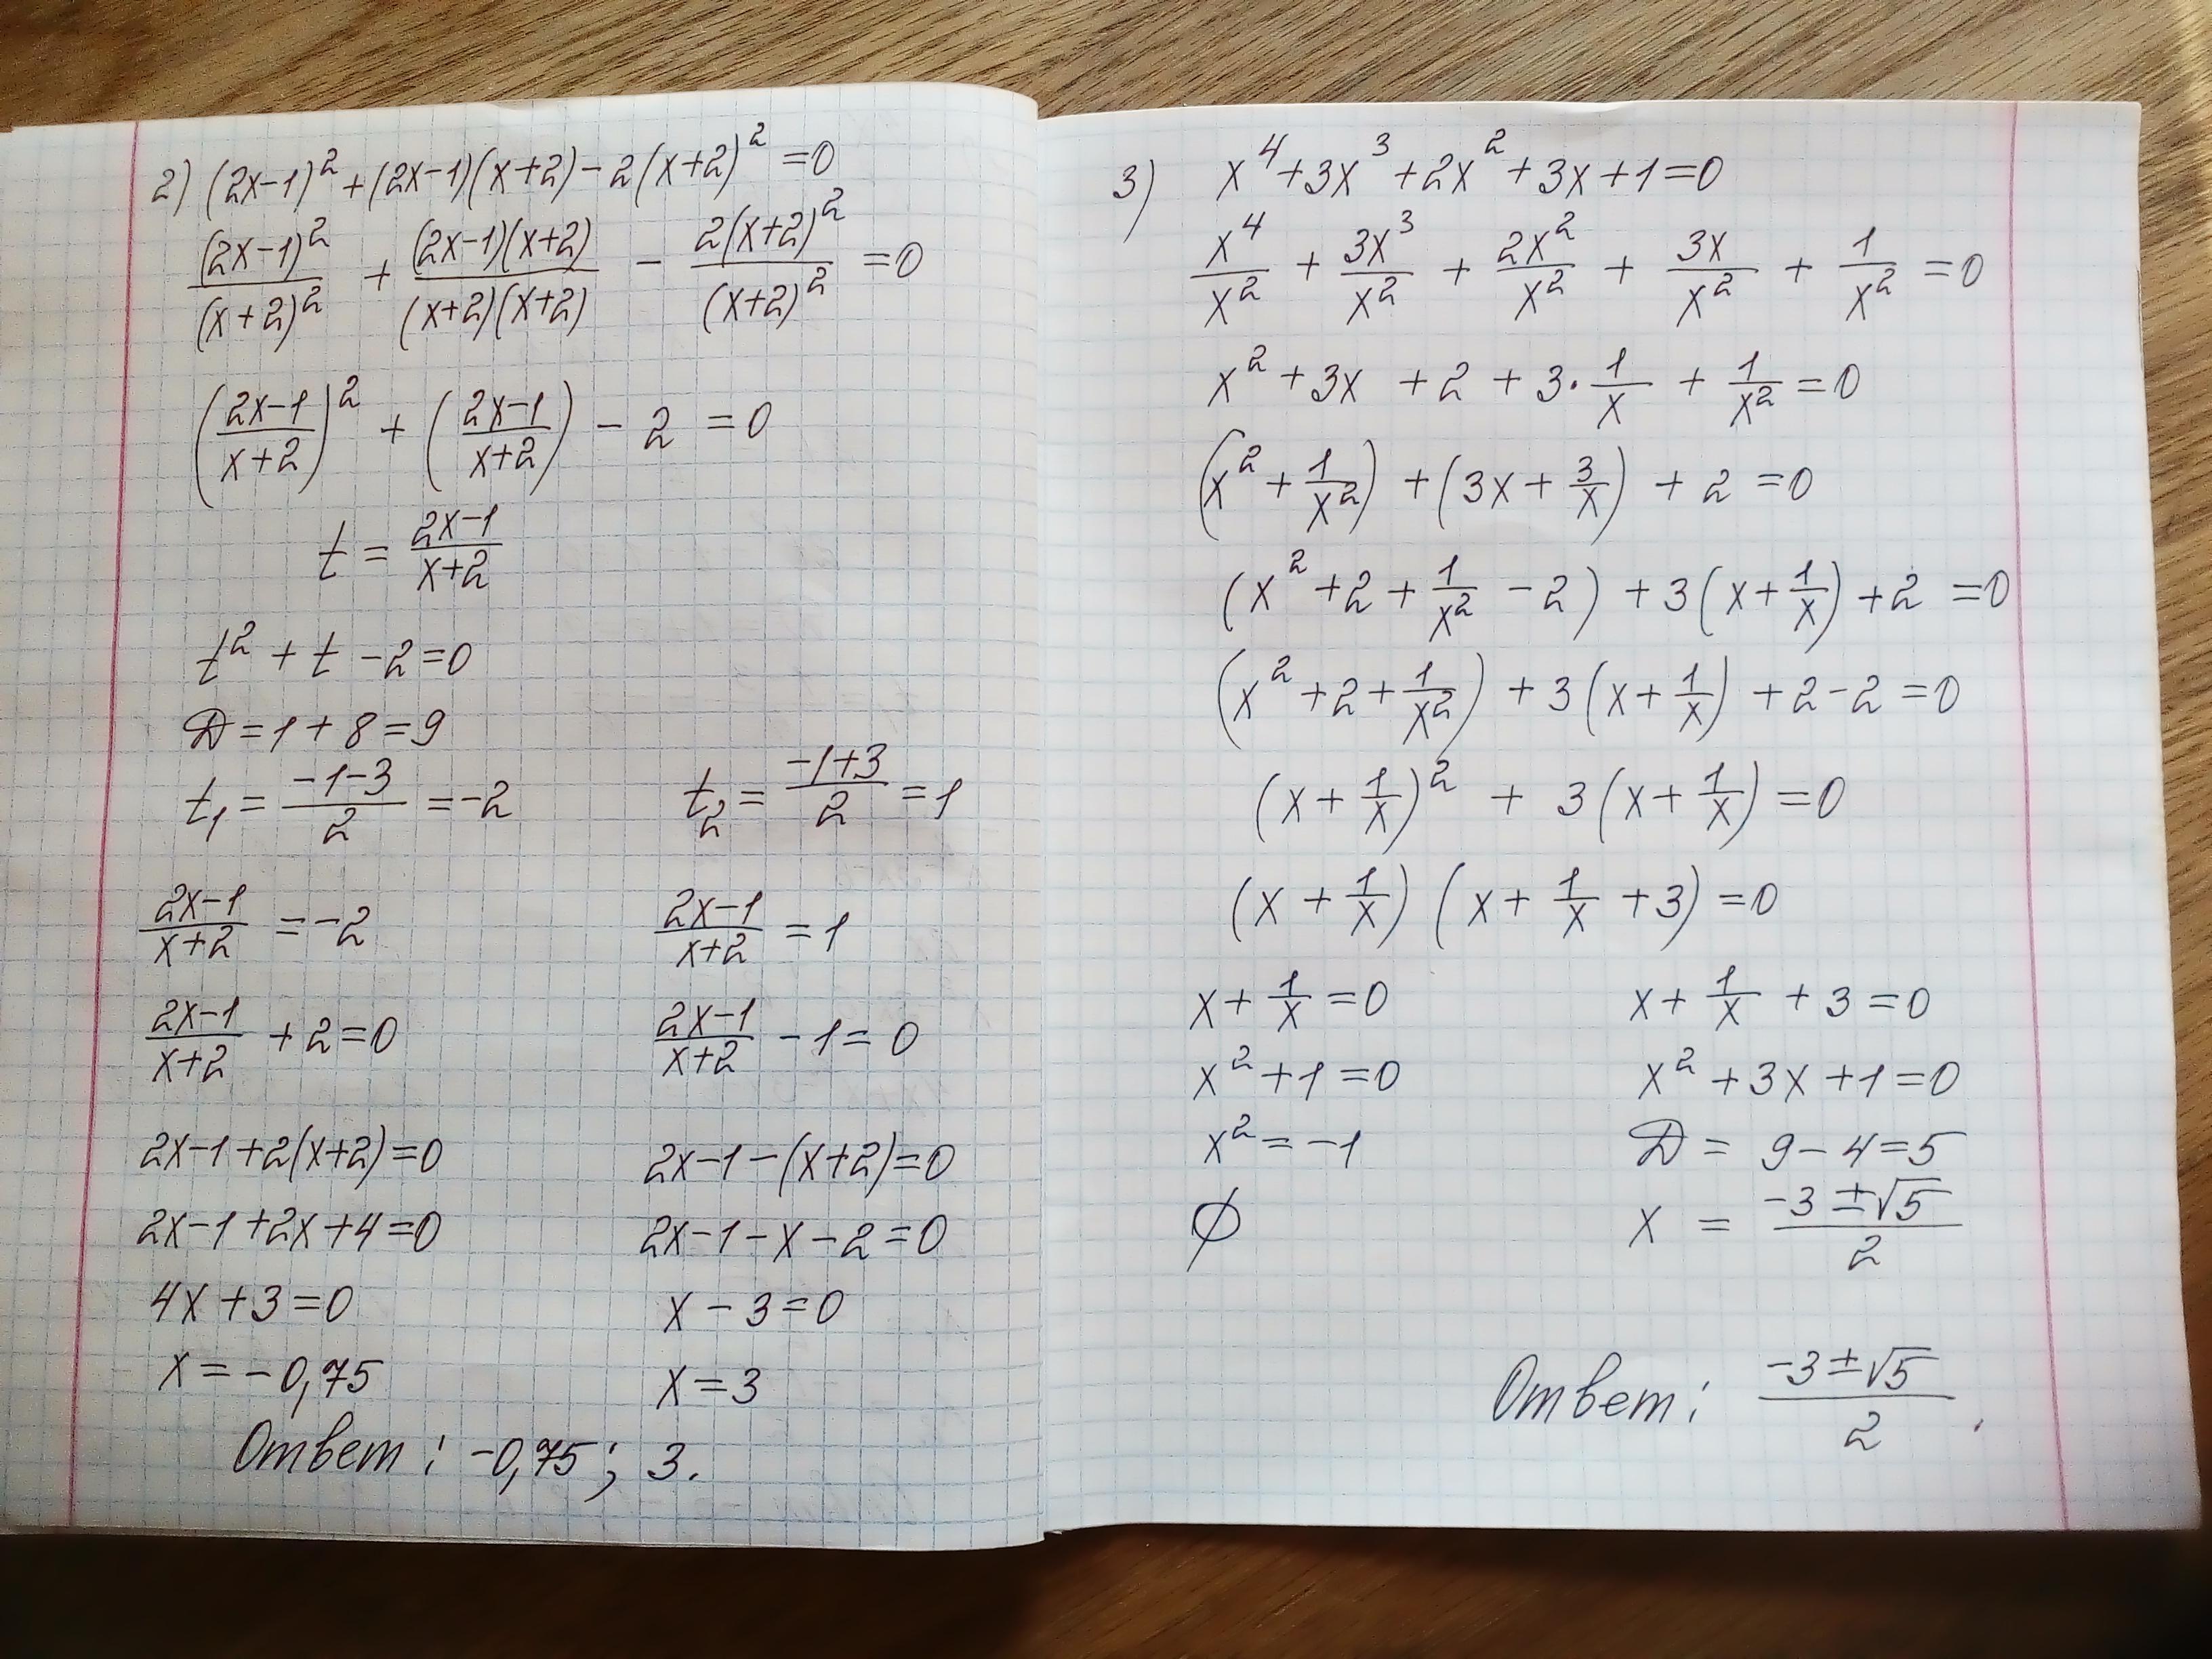 2) (2x-1)² + (2x-1)(x+2) - 2(x+2)² = 0
(2x-1)²/(x+2)² + (2x-1)(x+2)/(x+2)(x+2) - 2(x+2)²/(x+2)² = 0
((2x-1)/(x+2))² + ((2x-1)/(x+2)) - 2 = 0
t = (2x-1)/(x+2)
t² + t - 2 = 0
D = 1 + 8 = 9
t₁ = (-1-3)/2 = -2   t₂ = (-1+3)/2 = 1
(2x-1)/(x+2) = -2   (2x-1)/(x+2) = 1
(2x-1)/(x+2) + 2 = 0   (2x-1)/(x+2) - 1 = 0
2x-1+2(x+2)=0   2x-1-(x+2)=0
2x-1+2x+4=0   2x-1-x-2=0
4x+3=0   x-3=0
x=-0,75   x=3
Ответ: -0,75; 3.
3) x⁴+3x³+2x²+3x+1=0
x⁴/x² + 3x³/x² + 2x²/x² + 3x/x² + 1/x² = 0
x² + 3x + 2 + 3·1/x + 1/x² = 0
(x² + 1/x²) + (3x + 3/x) + 2 = 0
(x² + 2 + 1/x² - 2) + 3(x + 1/x) + 2 = 0
(x² + 2 + 1/x²) + 3(x + 1/x) + 2 - 2 = 0
(x + 1/x)² + 3(x + 1/x) = 0
(x + 1/x)(x + 1/x + 3) = 0
x + 1/x = 0   x + 1/x + 3 = 0
x² + 1 = 0   x² + 3x + 1 = 0
x² = -1   D = 9-4=5
∅   x = (-3±√5)/2
Ответ: (-3±√5)/2.